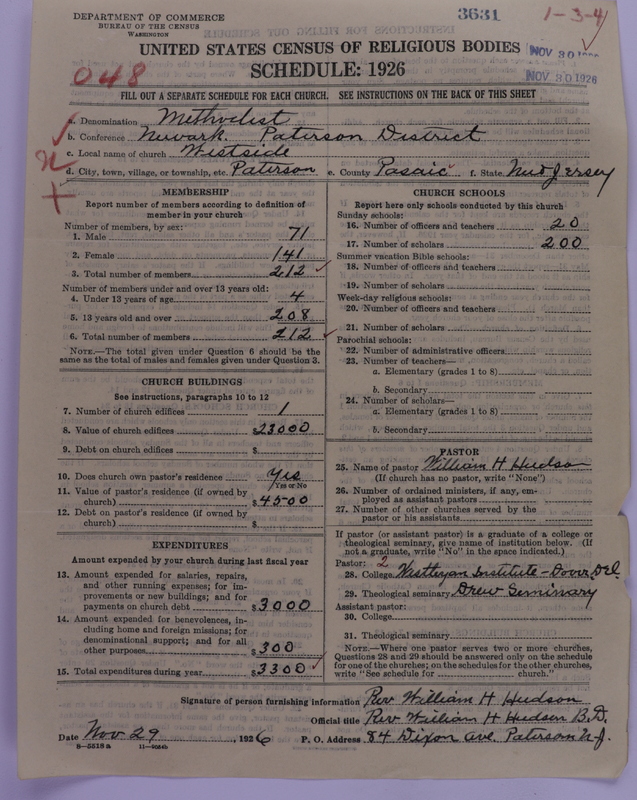 DEPARTMENT OF COMMERCE
BUREAU OF THE CENSUS
WASHINGTON
3631
1-3-4
UNITED STATES CENSUS OF RELIGIOUS BODIES
NOV 30 1926
SCHEDULE: 1926
NOV 30 1926
048
FILL OUT A SEPARATE SCHEDULE FOR EACH CHURCH. SEE INSTRUCTIONS ON THE BACK OF THIS SHEET
a. Denomination Methodist
b. Conference Newark. Paterson District
c. Local name of church Westside
d. City, town, village, or township, etc. Paterson e. County Pasaic f. State New Jersey
MEMBERSHIP
Report number of members according to definition of
member in your church
Number of members, by sex:
1. Male 71
2. Female 141
3. Total number of members 212
Number of members under and over 13 years old:
4. Under 13 years of age 4
5. 13 years old and over 208
6. Total number of members 212
NOTE.—The total given under Question 6 should be the
same as the total of males and females given under Question 3.
CHURCH BUILDINGS
See instructions, paragraphs 10 to 12
7. Number of church edifices 1
8. Value of church edifices $23000
9. Debt on church edifices $
10. Does church own pastor's residence Yes
Yes or No
11. Value of pastor's residence (if owned by
church) $4500
12. Debt on pastor's residence (if owned by
church) $
EXPENDITURES
Amount expended by your church during last fiscal year
13. Amount expended for salaries, repairs,
and other running expenses; for im-
provements or new buildings; and for
payments on church debt $3000
14. Amount expended for benevolences, in-
cluding home and foreign missions; for
denominational support; and for all
other purposes $300
15. Total expenditures during year $3300
CHURCH SCHOOLS
Report here only schools conducted by this church
Sunday schools:
16. Number of officers and teachers 20
17. Number of scholars 200
Summer vacation Bible schools:
18. Number of officers and teachers
19. Number of scholars
Week-day religious schools:
20. Number of officers and teachers
21. Number of scholars
Parochial schools:
22. Number of administrative officers
23. Number of teachers—
a. Elementary (grades 1 to 8)
b. Secondary
24. Number of scholars—
a. Elementary (grades 1 to 8)
b. Secondary
PASTOR
25. Name of pastor William H Hudson
(If church has no pastor, write "None")
26. Number of ordained ministers, if any, em-
ployed as assistant pastors
27. Number of other churches served by the
pastor or his assistants
If pastor (or assistant pastor) is a graduate of a college or
theological seminary, give name of institution below. (If
not a graduate, write "No" in the space indicated.)
Pastor: 2
28. College Westleyan Institute - Dover, Del.
29. Theological seminary Drew Seminary
Assistant pastor:
30. College
31. Theological seminary
NOTE.—Where one pastor serves two or more churches,
Questions 28 and 29 should be answered only on the schedule
for one of the churches; on the schedules for the other churches,
write "See schedule for church."
Signature of person furnishing information Rev William H Hudson
Official title Rev William H Hudson B.D.
Date Nov 29, 1926 P. O. Address 84 Dixon ave. Paterson N.J.
8—5518a